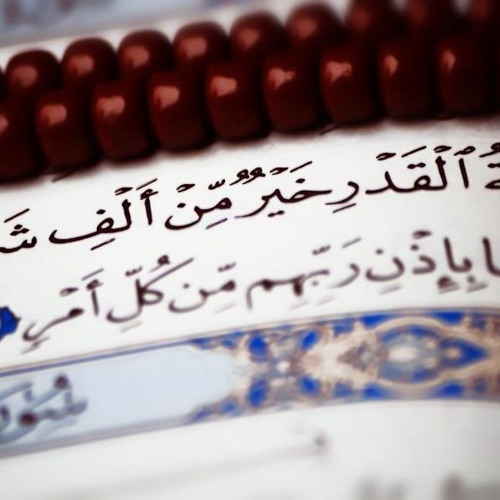 ةُ ٱلۡقَدۡرِ خَيۡرٞ مِّنۡ أَلۡفِ شَ
ا بِإِذۡنِ رَبِّهِم مِّن كُلِّ أَمۡرٖ
سُورَ